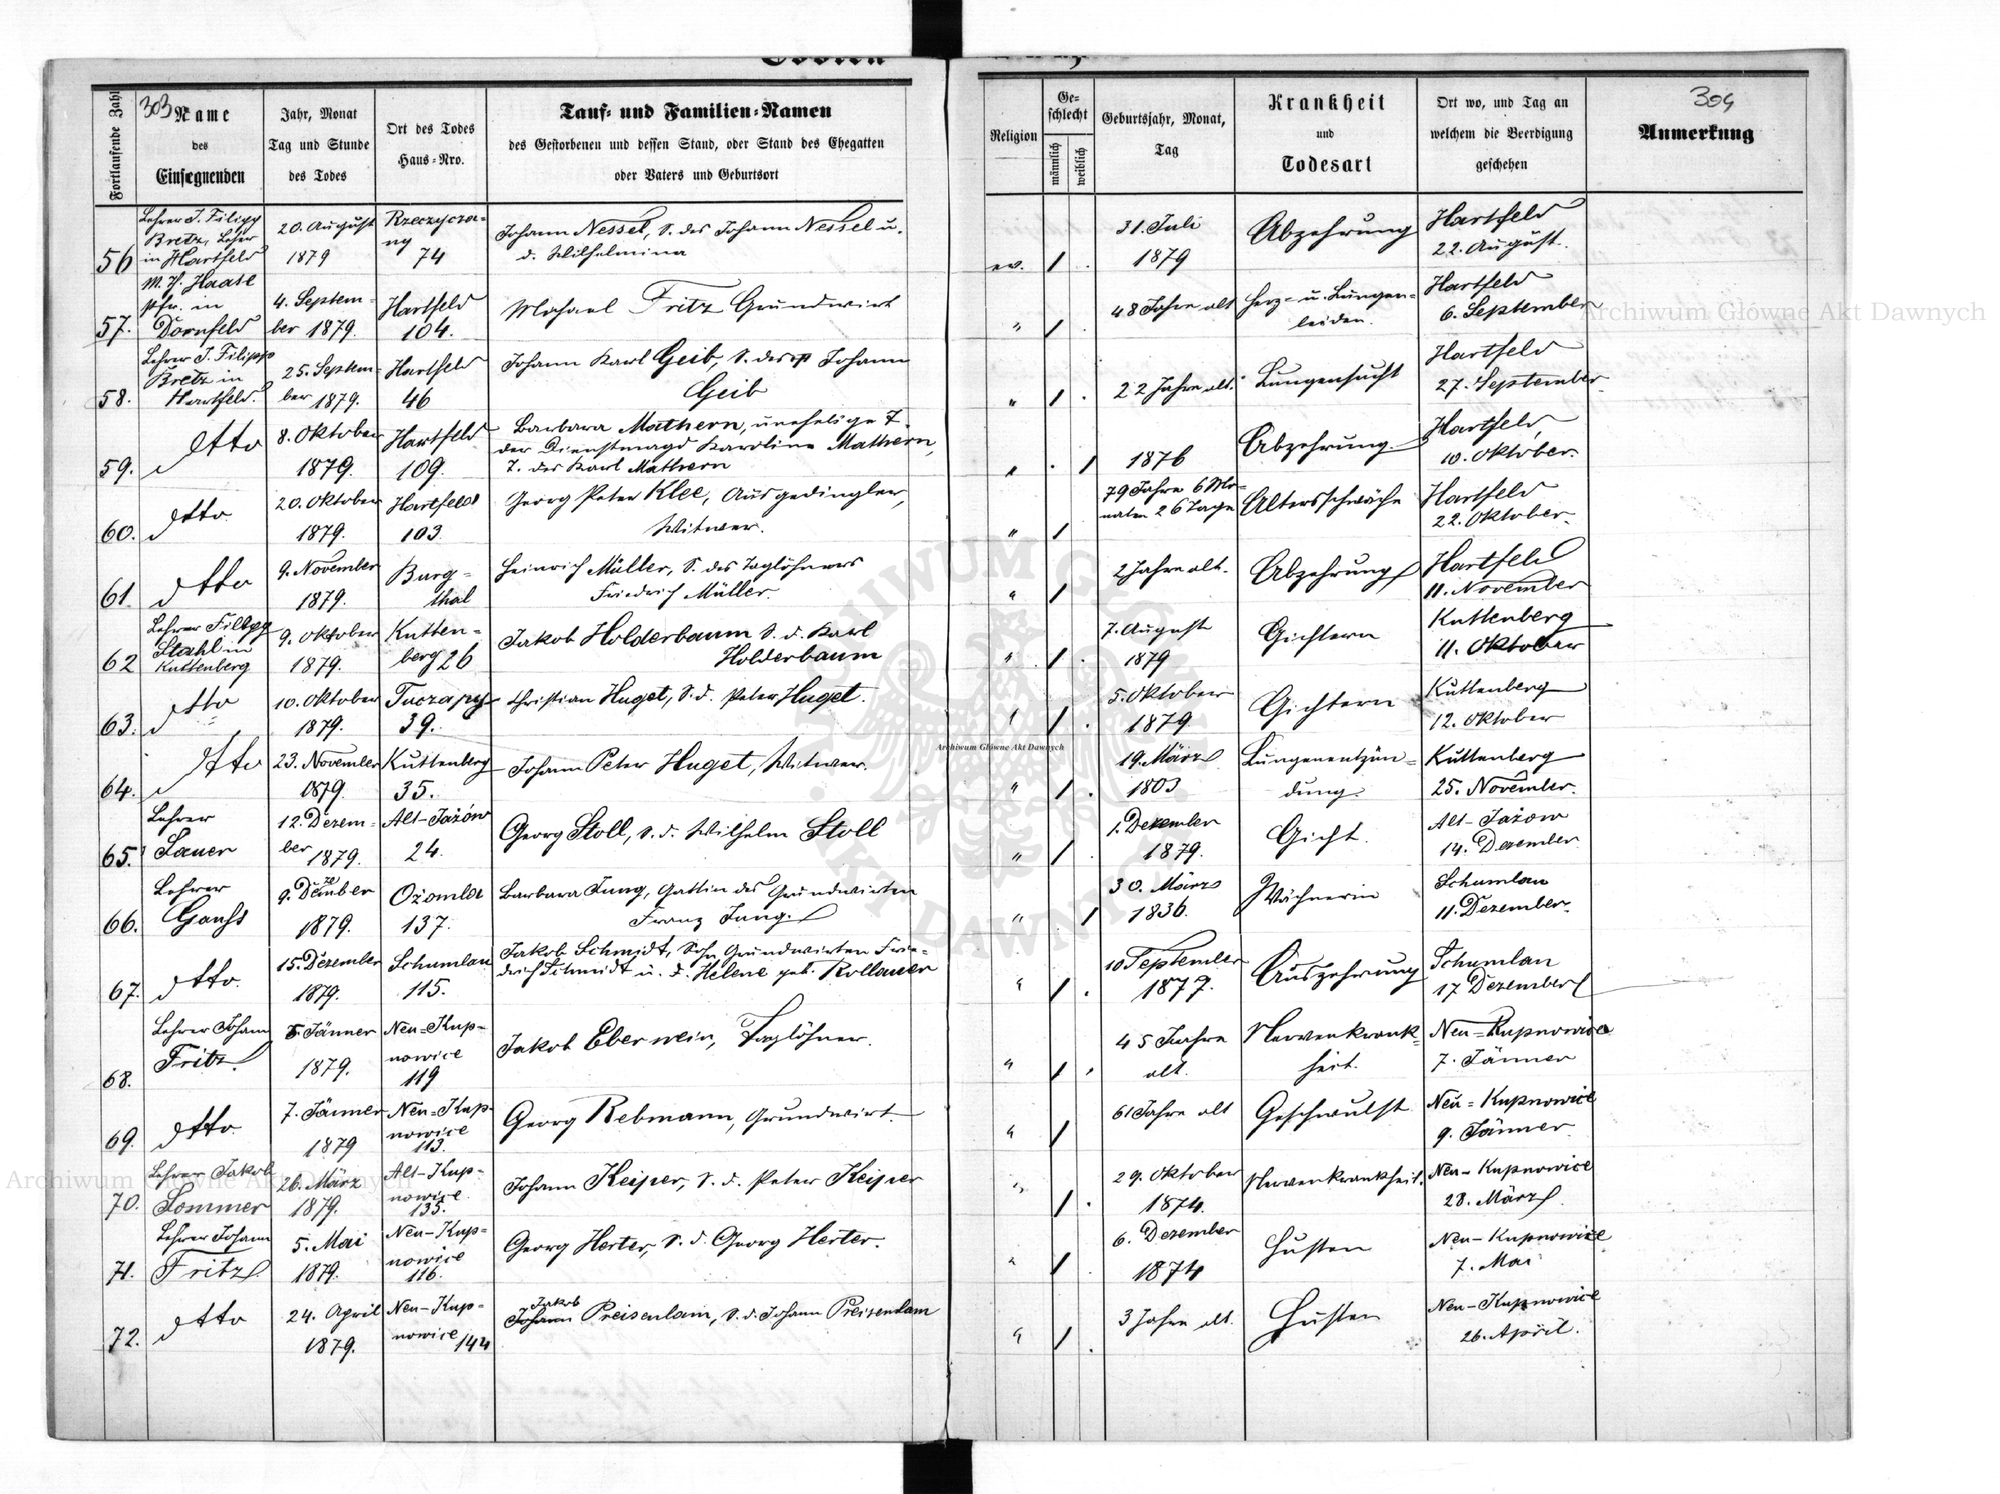 303
304
Fortlaufende Zahl
Name
des
Einsegnenden
Jahr, Monat
Tag und Stunde
des Todes
Ort des Todes
Haus-Nro.
Tauf- und Familien-Namen
des Gestorbenen und dessen Stand, oder Stand des Ehegatten
oder Vaters und Geburtsort
Religion
Ge-
schlecht
männlich
weiblich
Geburtsjahr, Monat,
Tag
Krankheit
und
Todesart
Ort wo, und Tag an
welchem die Beerdigung
geschehen
Anmerkung
56 Lehrer J. Filipp Bretz, Lehrer in Hartfeld
20. August 1879
Rzeczycza-
ny 74
Johann Nessel, S. des Johann Nessel u.
d. Wilhelmina
ev. 1 .
31. Juli 1879
Abzehrung
Hartfeld 22. August.
57. M. H. Haase Pfr. in Dornfeld
4. Septem-
ber 1879.
Hartfeld 104.
Michael Fritz Grundwirt
" 1
48 Jahre alt
Herz- u. Lungen-
leiden.
Hartfeld 6. September
58. Lehrer J. Filipp Bretz in Hartfeld.
25. Septem-
ber 1879.
Hartfeld 46
Johann Karl Geib, S. des Johann
Geib
" 1 .
22 Jahre alt.
Lungensucht
Hartfeld 27. September
59. dtto
8. Oktober 1879.
Hartfeld 109.
Barbara Mathern, uneheliche T.
der Dienstmagd Karoline Mathern,
T. des Karl Mathern
" . 1
1876
Abzehrung.
Hartfeld, 10. Oktober.
60. dtto
20. Oktober 1879.
Hartfeld 103
Georg Peter Klee, Ausgedingler,
Witwer.
" 1
79 Jahre 6 Mo-
naten 26 Tage
Altersschwäche
Hartfeld 22. Oktober.
61. dtto
9. November 1879.
Burg-
thal
Heinrich Müller, S. des Taglöhners
Friedrich Müller.
" 1
2 Jahre alt.
Abzehrung
Hartfeld 11. November
62 Lehrer Filipp Stahl in Kuttenberg
9. Oktober 1879.
Kutten-
berg 26
Jakob Holderbaum S. d. Karl
Holderbaum
" 1 .
7. August 1879
Gichtern
Kuttenberg 11. Oktober
63. dtto
10. Oktober 1879.
Tuczapy 39.
Christian Huget, S. d. Peter Huget.
" 1 .
5. Oktober 1879
Gichtern
Kuttenberg 12. Oktober
64. dtto
23. November 1879.
Kuttenberg 35.
Johann Peter Huget, Witwer.
" 1 .
19. März 1803
Lungenentzün-
dung.
Kuttenberg 25. November.
65. Lehrer Sauer
12. Dezem-
ber 1879.
Alt-Jażów 24.
Georg Stoll, S. d. Wilhelm Stoll
" 1 .
1. Dezember 1879.
Gicht.
Alt-Jażow 14. Dezember
66. Lehrer Gauss
9. Dezember 1879.
Ożomla 137.
Barbara Jung, Gattin des Grundwirten
Franz Jung.
" 1
30. März 1836.
Wöchnerin
Schumlau 11. Dezember.
67. dtto.
15. Dezember 1879.
Schumlau 115.
Jakob Schmidt, Sohn Grundwirten Frie-
drich Schmidt u. d. Helene geb. Rollauer
" 1 .
10 September 1877.
Auszehrung
Schumlau 17 Dezember
68. Lehrer Johann Fritz.
5 Jänner 1879.
Neu-Kup-
nowice
119
Jakob Eberwein, Taglöhner.
" 1 .
45 Jahre
alt.
Nervenkrank-
heit.
Neu-Kupnowice 7. Jänner
69. dtto.
7. Jänner 1879
Neu-Kup-
nowice
113.
Georg Rebmann, Grundwirt
" 1
61 Jahre alt
Geschwulst
Neu-Kupnowice 9. Jänner
70. Lehrer Jakob Sommer
26. März 1879.
Alt-Kup-
nowice.
135.
Johann Keiper, S. d. Peter Keiper
" 1 .
29. Oktober 1874.
Nervenkrankheit.
Neu-Kupnowice 28. März.
71. Lehrer Johann Fritz
5. Mai 1879.
Neu-Kup-
nowice
116.
Georg Herter, S. d. Georg Herter.
" 1
6. Dezember 1874
Husten
Neu-Kupnowice 7. Mai
72. dtto
24. April 1879.
Neu-Kup-
nowice 144
Jakob
Johann Preisenlam, S. d. Johann Preisendam
" 1 .
3 Jahre alt.
Husten
Neu-Kupnowice 26. April.
Archiwum Główne Akt Dawnych
Archiwum Główne Akt Dawnych
Archiwum Główne Akt Dawnych